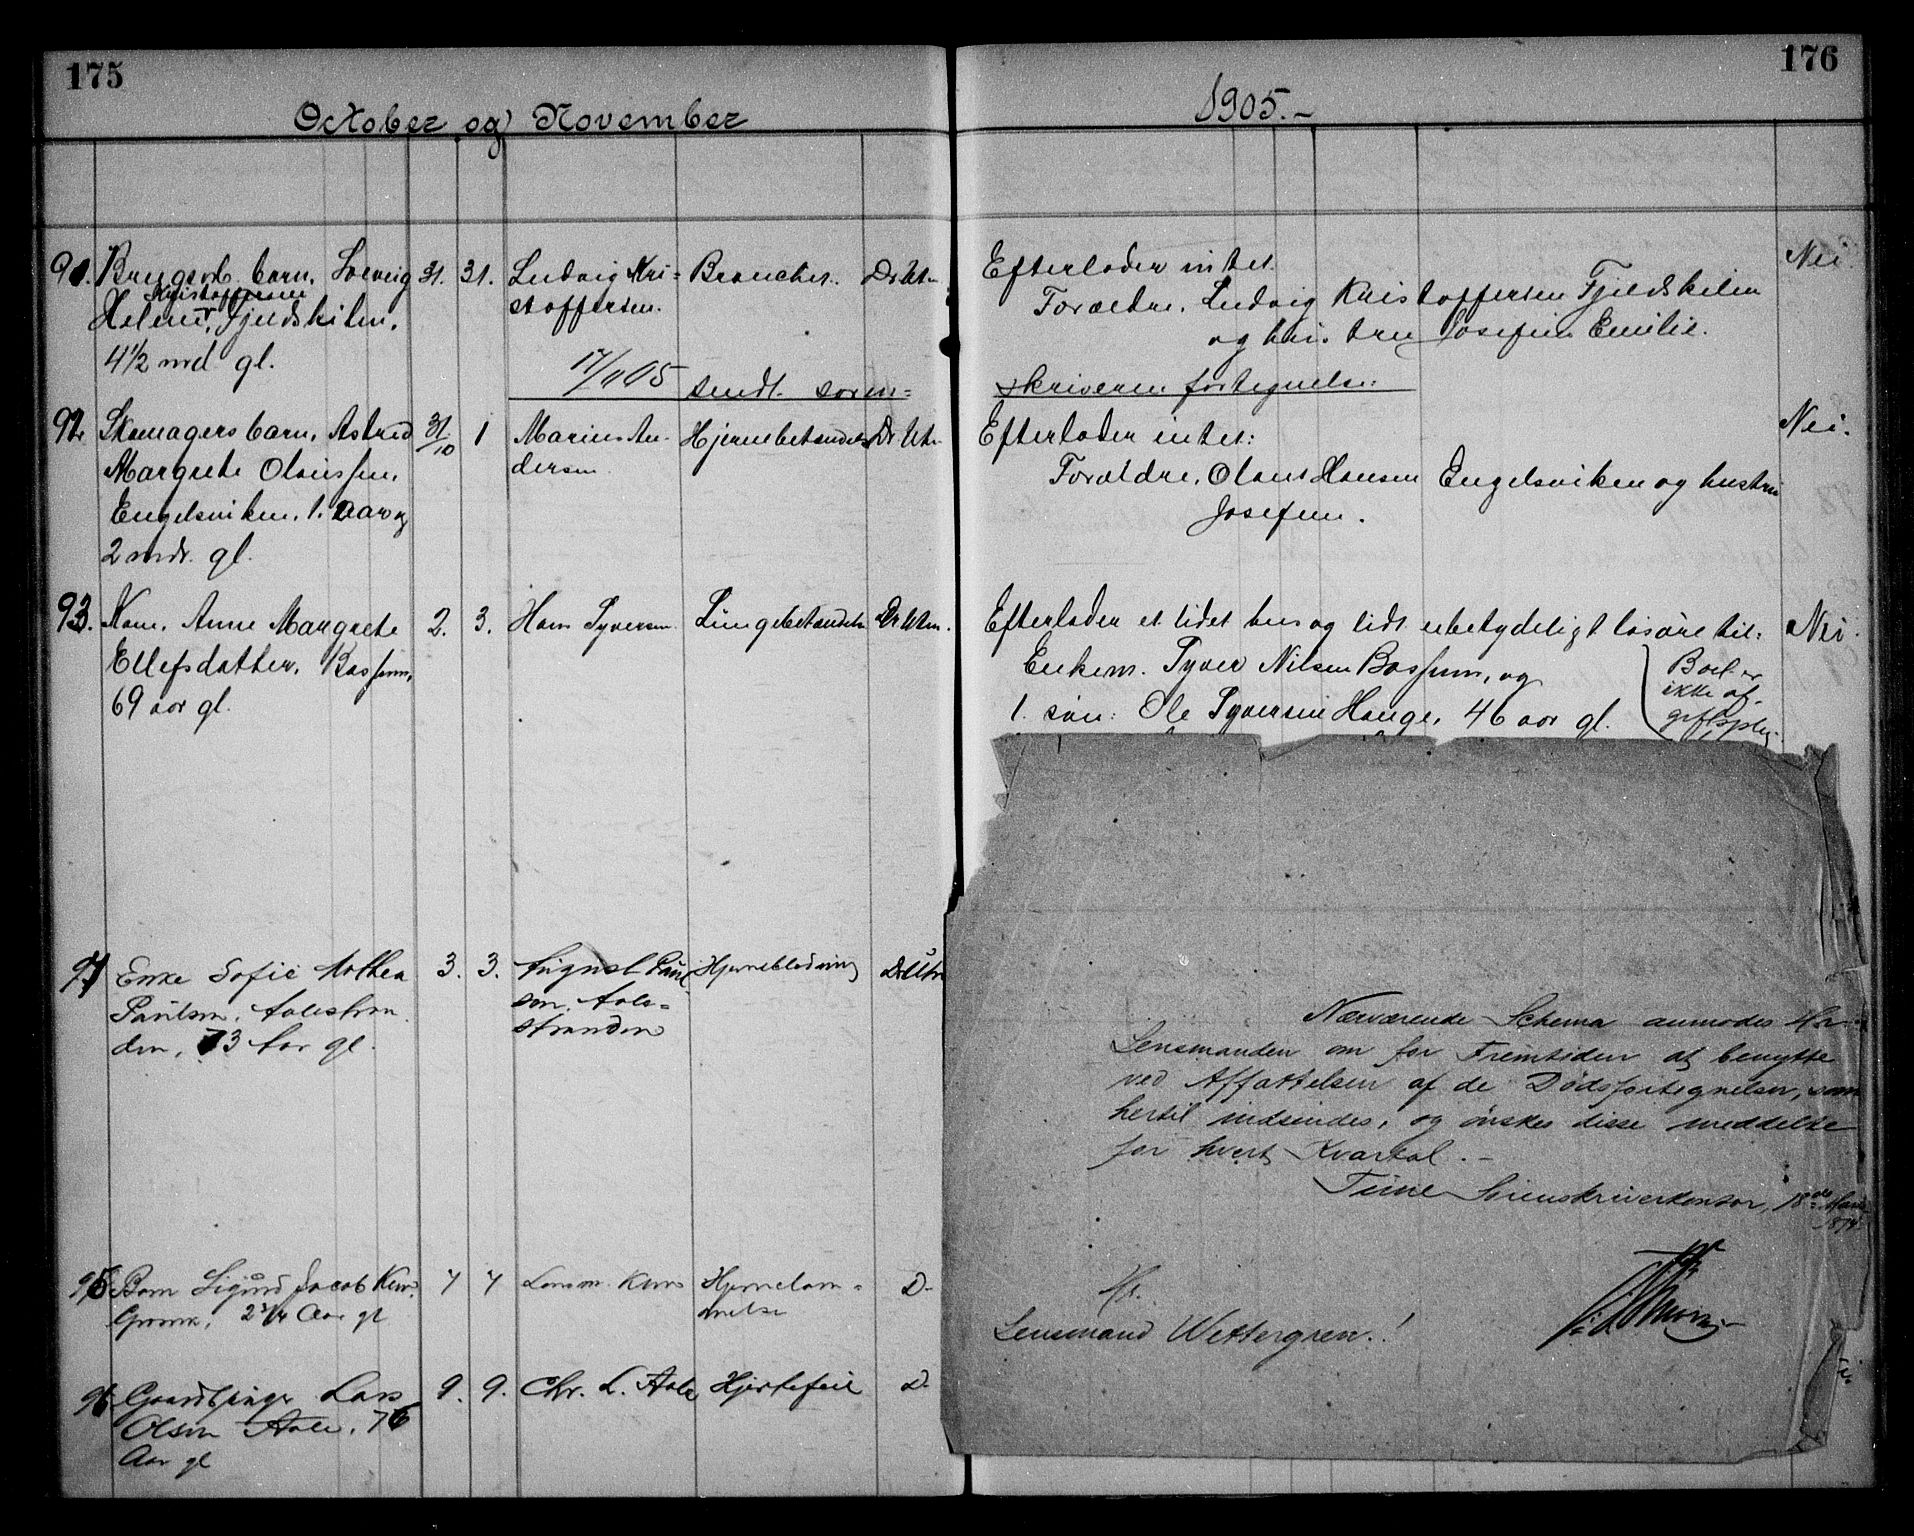 175
176
October og November
1905.-
91. Brugerb. barn, Solveig 31. 31. Ludvig Kri= Bronchit. Dr Utn
Kristoffersen
Helene, Fjeldskilen, stoffersen.
4½ md gl.
Efterlader intet.
Forældre, Ludvig Kristoffersen Fjeldskilen
og hustru Josefine Emilie.
Nei
17/11 05 sendt soren= skriveren fortegnelse
92. Skomagers barn, Astrid 31/10 1 Marius An- Hjernebetændelse Dr Utn
Margrete Olaussen, dersen
Engelsviken, 1. Aar og
2 mdr. gl.
Efterlader intet:
Forældre, Olaus Hansen Engelsviken og hustru
Josefine.
Nei.
93. Kone, Anne Margrete 2. 3. Hans Tyversen Lungebetændelse Dr Utn.
Ellefsdatter, Bossum,
69 aar gl.
Efterlader et lidet hus og lidt ubetydeligt løsøre til:
Enkem. Tyver Nilsen Bossum, og
1. søn: Ole Tyversen Hauge, 46 aar gl.
Boet er
ikke af-
giftsplig
Nei.
94 Enke Sofie Mathea 3. 3. August Paul Hjerneblødning Dr Utn
Paulsen, Aalestran sen, Aale=
den, 73 Aar gl. stranden
95 Barn Sigurd Jacob 7 7 Lensm. Hjernelam=
2¾ Aar gl melse D-
96 Gaardbruger Lars 9. 9. Chr. L. Aale Hjertefeil D-
Olsen Aale, 76
Aar gl
Nærværende Schema anmodes Hr.
Lensmanden om for Fremtiden at benytte
ved Affattelsen af de Dødsfortegnelser, som
hertil indsendes, og ønskes disse meddelte
for hvert Kvartal.-
Tune Sorenskriverkontor, 18de Marts
Hr.
Lensmand Wettergren.!